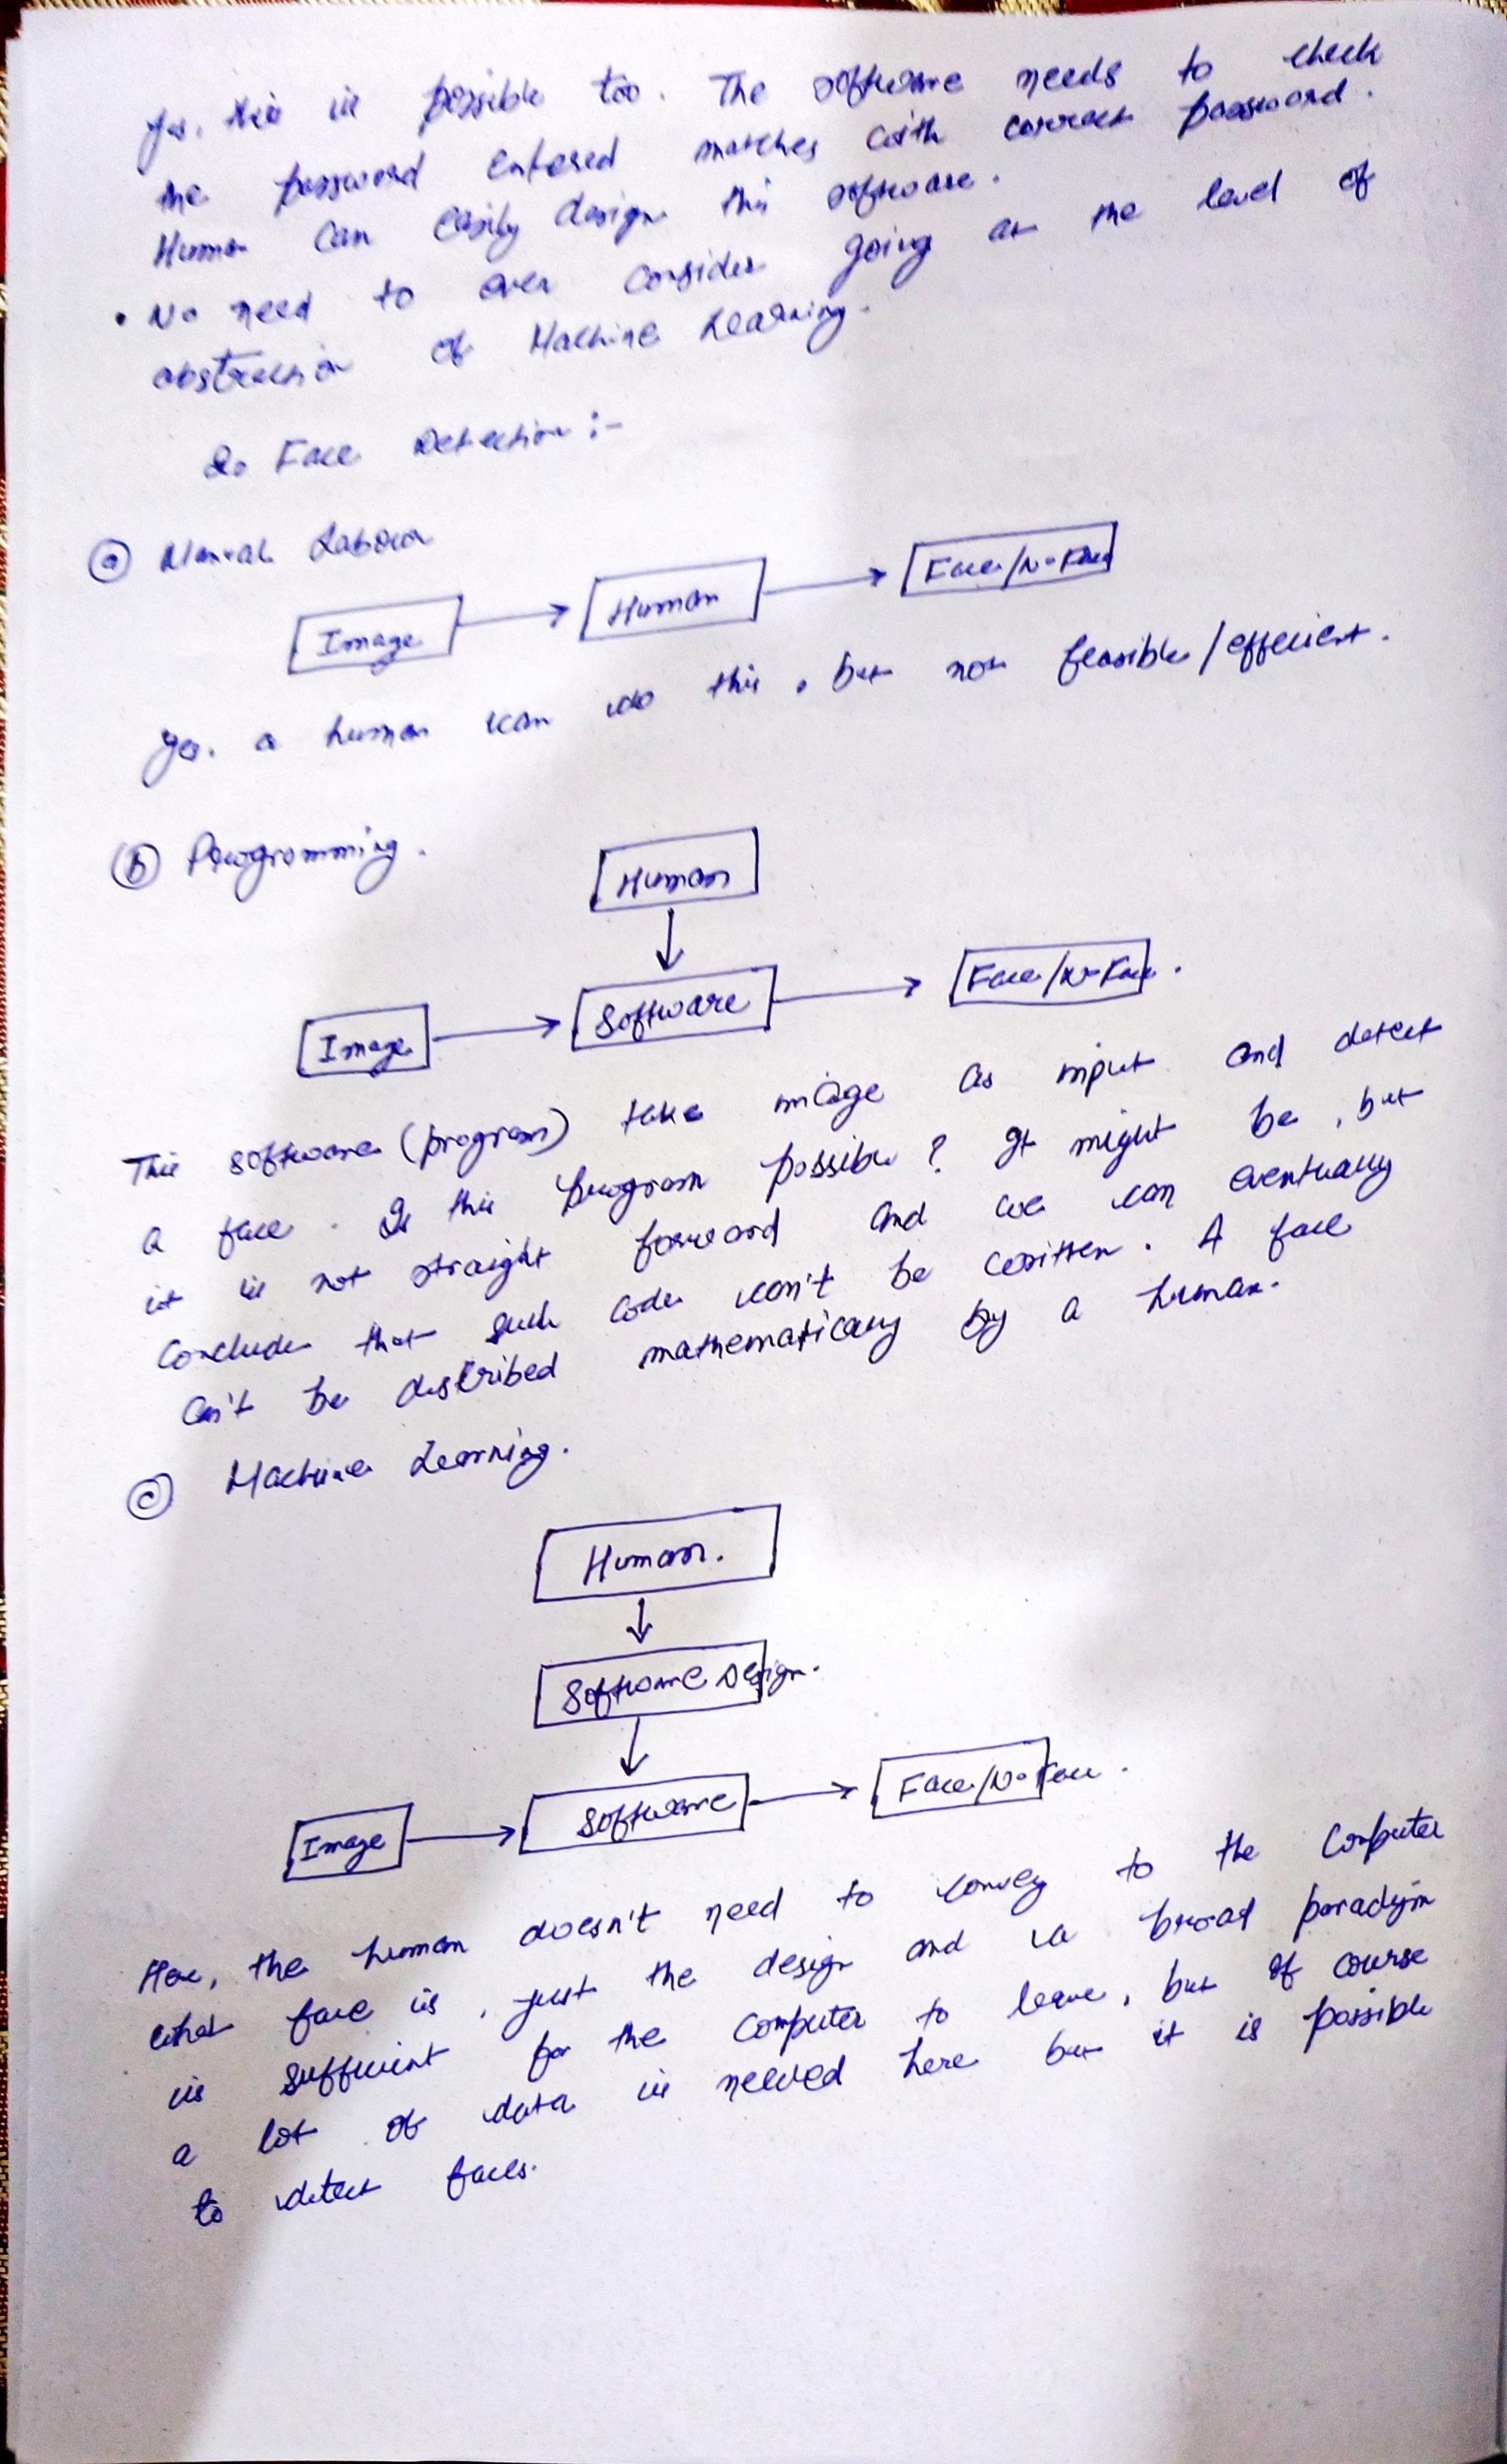 Yes. this is possible too. The software needs to check
the password entered matches with correct password.
Human can easily design this software.
• No need to even consider going at the level of
abstraction of Machine Learning.
2. Face Detection :-
(a) Manual Labour
Image Human Face/No Face
Yes. a human can do this, but not feasible/efficient.
(b) Programming.
Human
Image Software Face/No Face.
This software (program) take image as input and detect
a face. Is this program possible? It might be, but
it is not straight forward and we can eventually
Conclude that such code can't be written. A face
Can't be described mathematically by a human.
(c) Machine Learning.
Human.
Software Design.
Image Software Face/No Face.
Here, the human doesn't need to convey to the Computer
what face is, just the design and a broad paradigm
is sufficient for the Computer to learn, but of course
a lot of data is needed here but it is possible
to detect faces.